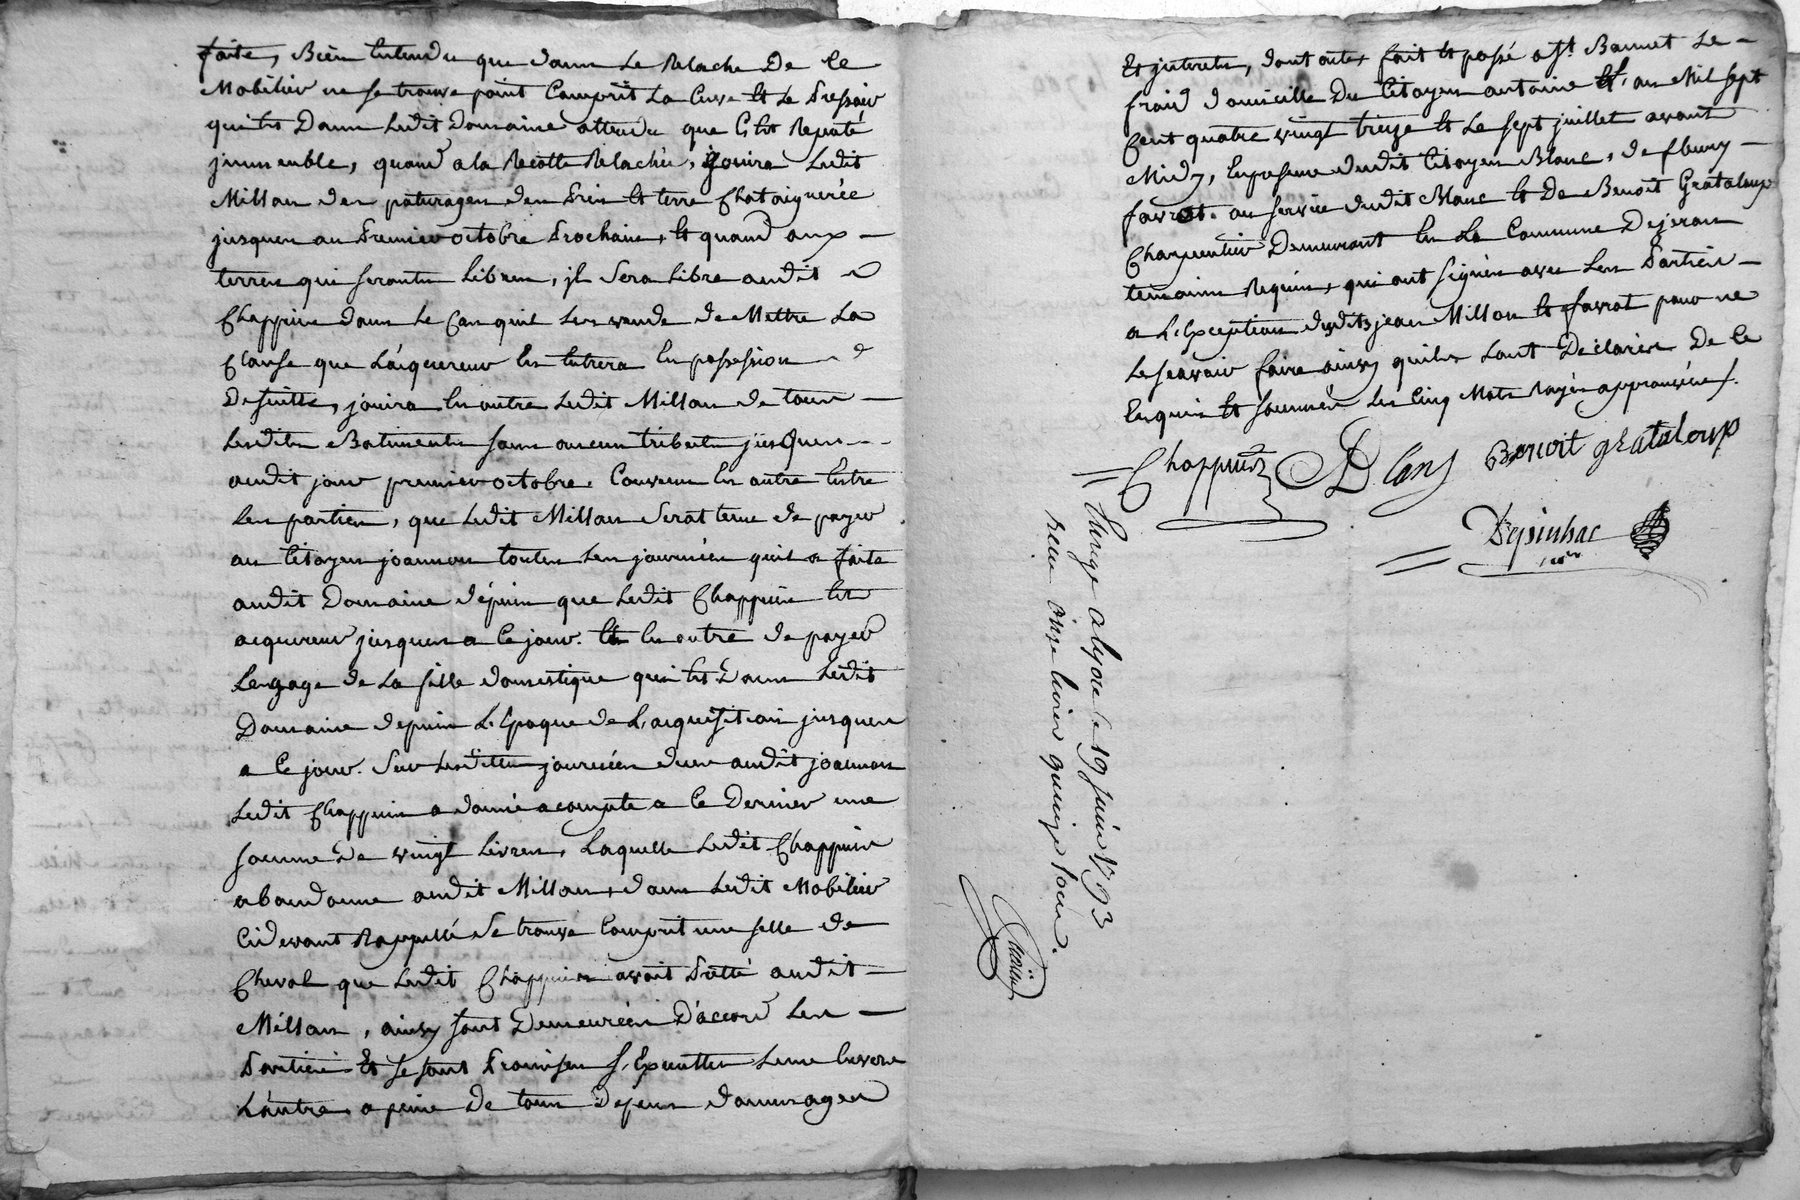 faite, Bien Entendu que dans Le Relache De Ce
Mobilier ne se trouve point Comprit La Cuve Et Le Pressoir
qui Est Dans Ledit Domaine attendu que C'Est Reputé
jmmeuble, quand a la Recolte Relachée, jouira Ledit
Millan des paturages des Prés Et terre Chataigneréé
jusques au Premier octobre Prochain, Et quand aux —
terres qui seronts Libres, jl Sera Libre audit
Chappuis dans Le Cas quil Les vende de Mettre La
Clause que L'aquereur En Entrera En possession
De suitte, jouira En outre Ledit Millan de tous —
Lesdits Batiments sans aucun tribut jusques — -
audit jour premier octobre. Convenu En outre Entre
Les parties, que Ledit Millan Serat tenu de payer
au Citoyen joannon toutes Les journées quil a faite
audit Domaine depuis que Ledit Chappuis Est
acquereur jusques a Ce jour. Et En outre de payer
Les gage de La fille domestique qui Est Dans Ledit
Domaine depuis L'Epoque de L'acquisition jusques
a Ce jour. Sur Lesdittes journées dues audit joannon
Ledit Chappuis a donné acompte a Ce Dernier une
somme De vingt Livres, Laquelle Ledit Chappuis
abandonne audit Millan, dans Ledit Mobilier
Cidevant Rappellé Se trouve Comprit une selle de
Cheval que Ledit Chappuis avoit Pretté audit —
Millan, ainsy sont Demeurées D'accord Les —
Parties Et se sont Promises s'Executter L'une Envers
L'autre a peine De tous Depens dommages
Et jnterets, dont acte, fait Et passé a St. Bonnet Le —
froid domicille Du Citoyen antoine Et. an Mil sept
Cent quatre vingt treize Et Le sept juillet avant
Midy, En presence dudit Citoyen Blanc, de fleury —
favrot. au service dudit Blanc Et De Benoit Grataloup
Charpentier Demeurant En La Commune De
temoins Requis, qui ont signés avec Les Parties —
a L'Exception dudits jean Millan Et favrot pour ne
Le scavoir faire ainsy quils L'ont Declarés De Ce
Enquis Et sommés Les Cinq Mots Rayés approuvées.
Chappuis Blanc Benoit grataloup
Depinhac
nore
Enrge a Lyon le 19 juin 1793
Reçu onze livres quinze sous.